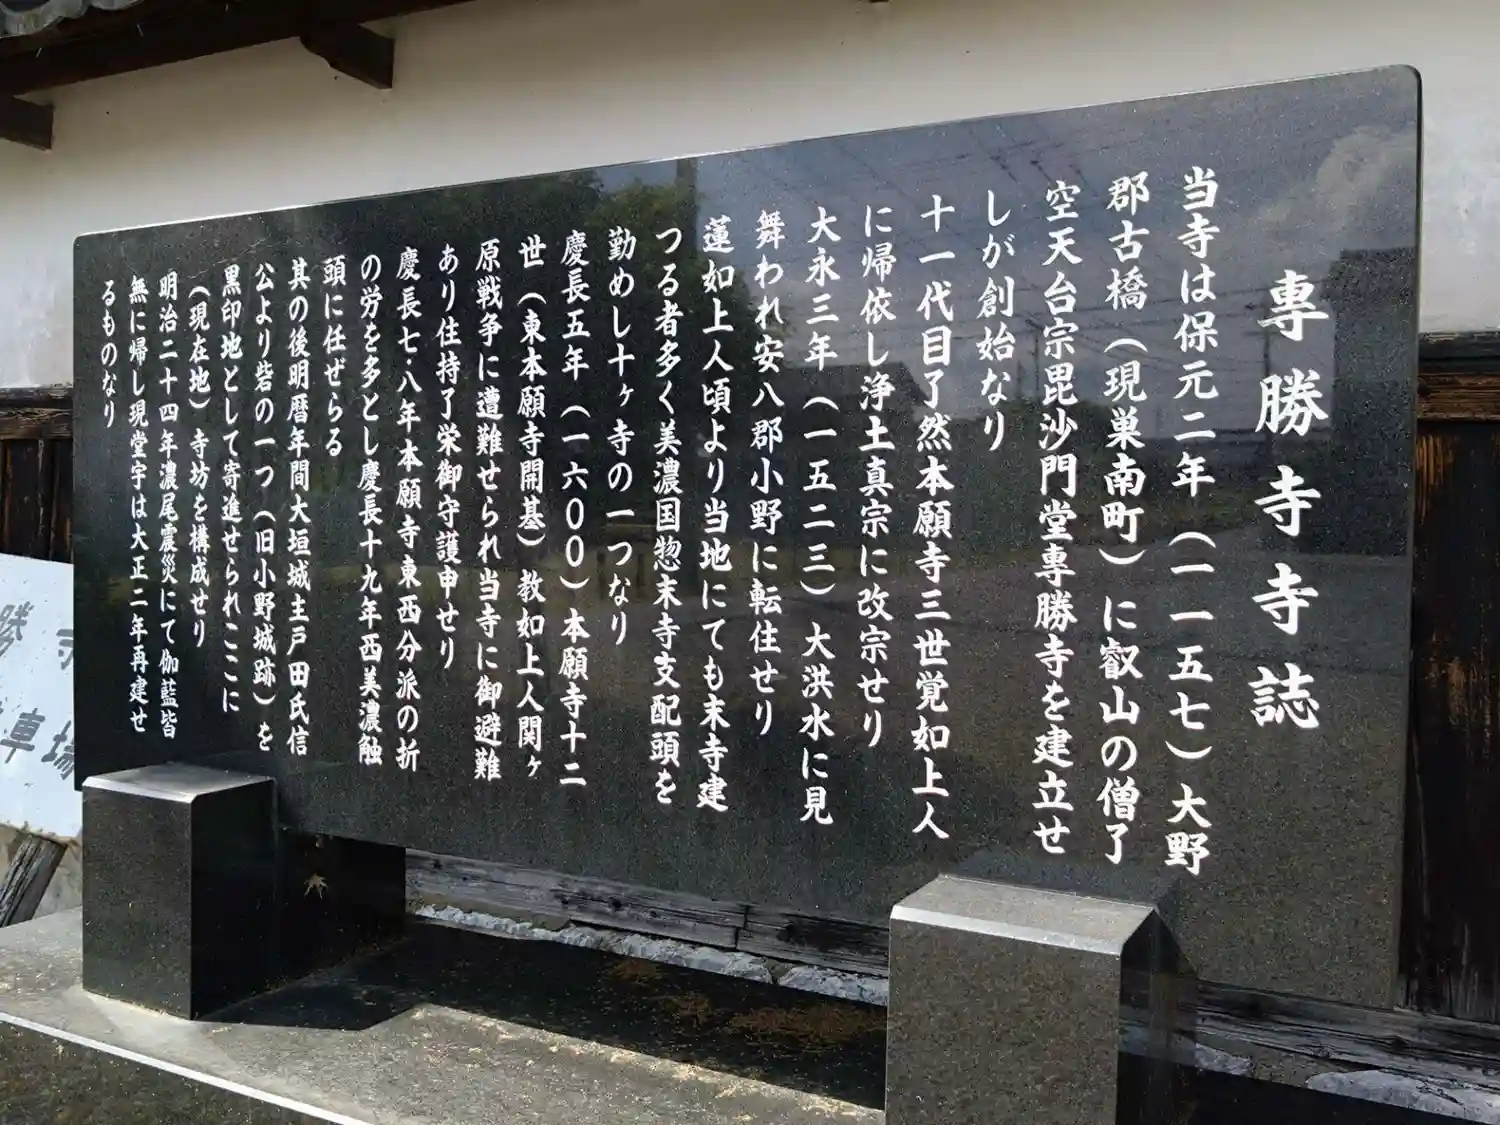 專勝寺寺誌
当寺は保元二年（一一五七）大野
郡古橋（現巣南町）に叡山の僧了
空天台宗毘沙門堂專勝寺を建立せ
しが創始なり
十一代目了然本願寺三世覚如上人
に帰依し浄土真宗に改宗せり
大永三年（一五二三）大洪水に見
舞われ安八郡小野に転住せり
蓮如上人頃より当地にても末寺建
つる者多く美濃国惣末寺支配頭を
勤めし十ヶ寺の一つなり
慶長五年（一六〇〇）本願寺十二
世（東本願寺開基）教如上人関ヶ
原戦争に遭難せられ当寺に御避難
あり住持了栄御守護申せり
慶長七・八年本願寺東西分派の折
の労を多とし慶長十九年西美濃触
頭に任ぜらる
其の後明暦年間大垣城主戸田氏信
公より砦の一つ（旧小野城跡）を
黒印地として寄進せられここに
（現在地）寺坊を構成せり
明治二十四年濃尾震災にて伽藍皆
無に帰し現堂宇は大正二年再建せ
るものなり
勝寺
車場